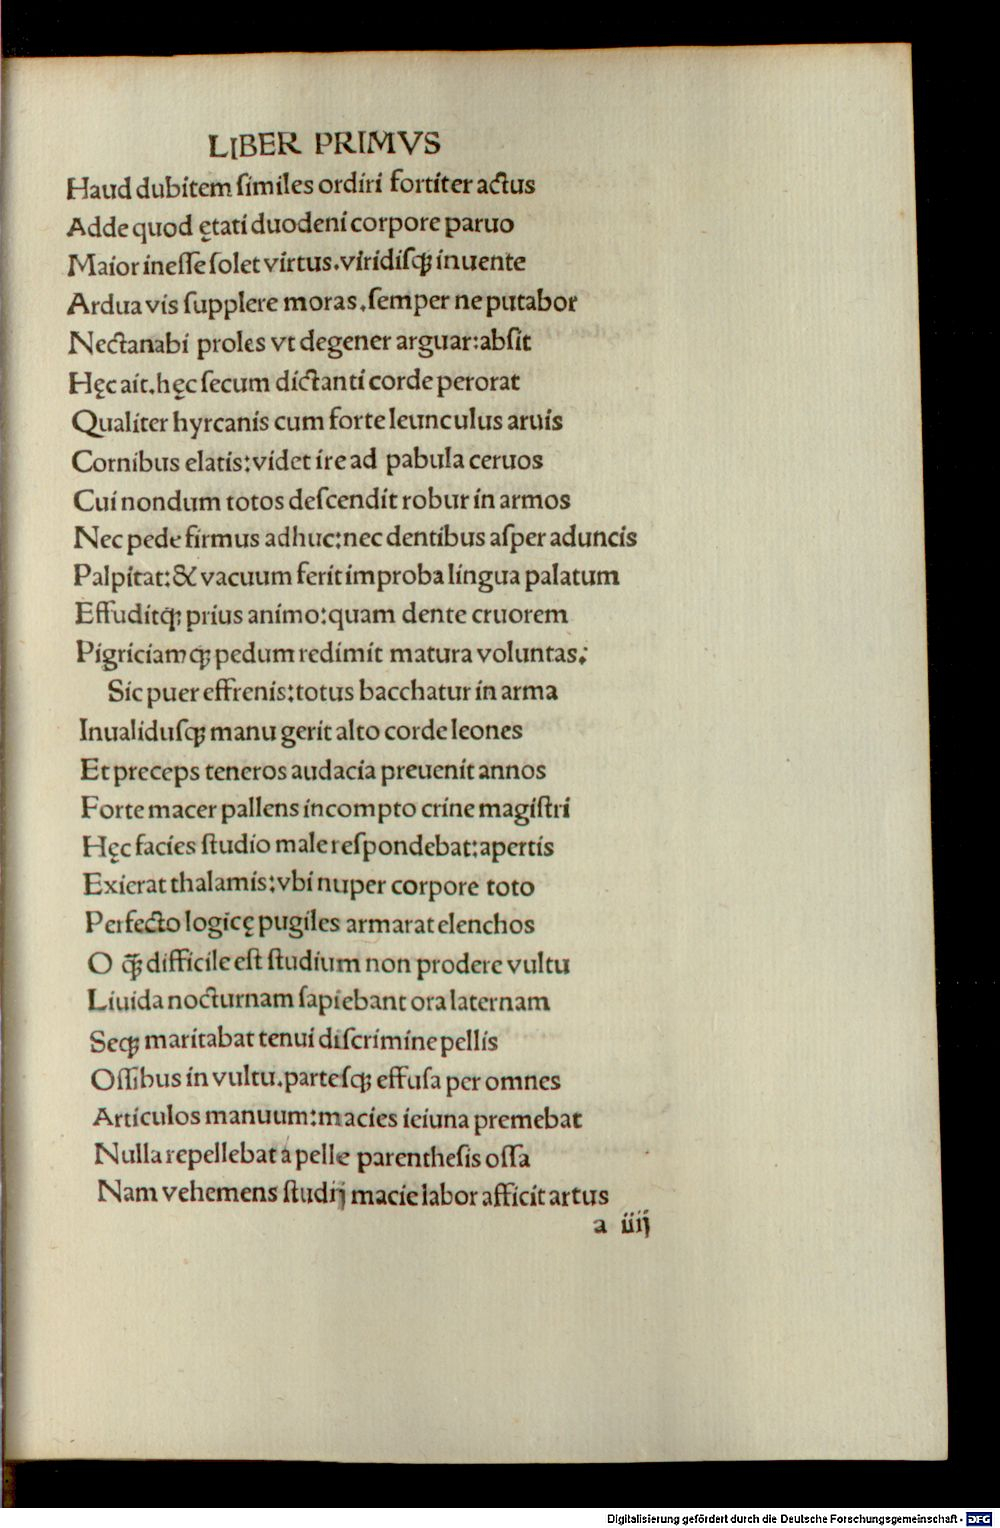 LIBER PRIMVS
Haud dubitem ſimiles ordiri fortiter actus
Adde quod ętati duodeni corpore paruo
Maior ineſſe ſolet virtus.viridiſqꝫ inuente
Ardua vis ſupplere moras.ſemper ne putabor
Nectanabi proles vt degener arguar:abſit
Hęc ait.hęc ſecum dictanti corde perorat
Qualiter hyrcanis cum forte leunculus aruis
Cornibus elatis:videt ire ad pabula ceruos
Cui nondum totos deſcendit robur in armos
Nec pede firmus adhuc:nec dentibus aſper aduncis
Palpitat:& vacuum ferit improba lingua palatum
Effuditqꝫ prius animo:quam dente cruorem
Pigriciamqꝫ pedum redimit matura voluntas;
Sic puer effrenis:totus bacchatur in arma
Inualiduſqꝫ manu gerit alto corde leones
Et preceps teneros audacia preuenit annos
Forte macer pallens incompto crine magiſtri
Hęc facies ſtudio male reſpondebat:apertis
Exierat thalamis:vbi nuper corpore toto
Perfecto logicę pugiles armarat elenchos
O q̄ꝫ difficile eſt ſtudium non prodere vultu
Liuida nocturnam ſapiebant ora laternam
Seqꝫ maritabat tenui diſcrimine pellis
Oſſibus in vultu.parteſqꝫ effuſa per omnes
Articulos manuum:macies ieiuna premebat
Nulla repellebat a pelle parentheſis oſſa
Nam vehemens ſtudij macie labor afficit artus
a iiij
Digitalisierung gefördert durch die Deutsche Forschungsgemeinschaft - DFG